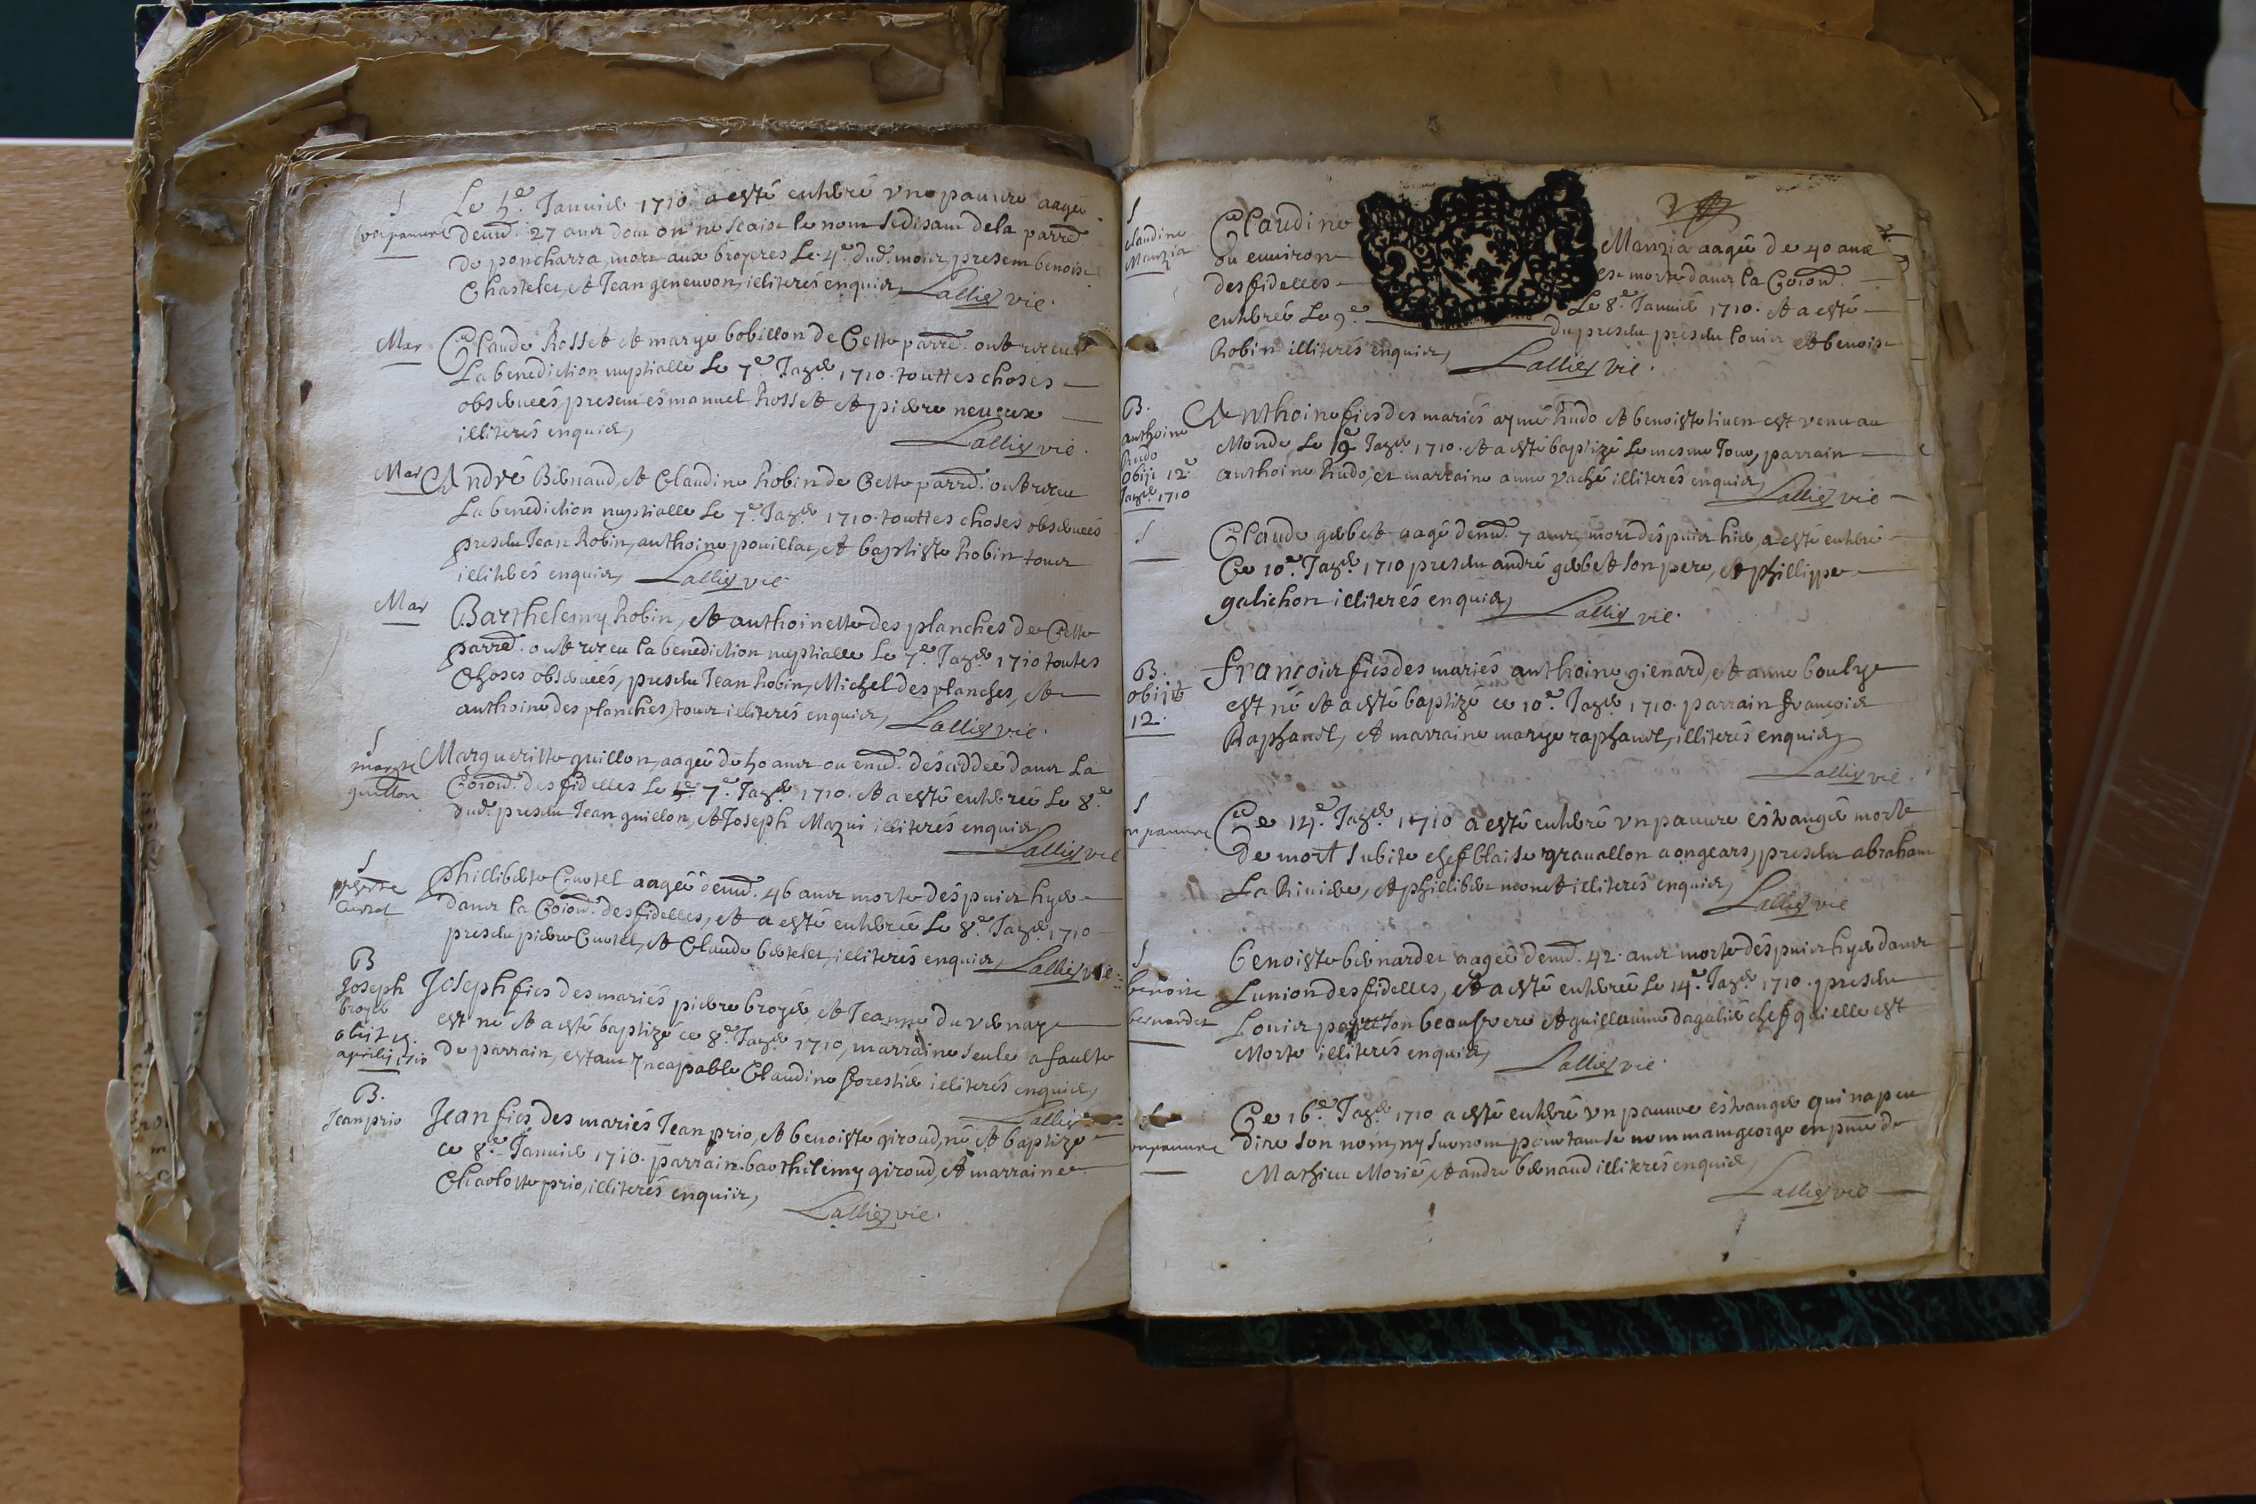 S
un pauvre
Le 5e. Januier 1710. a esté enterré vn pauure aagée
denuir. 27 ans dont on ne scaist le nom se disant de la parre
de poncharra, mort aux broyeres Le 4e. dud. mois, present benoist
Chastelet, et Jean geneuuon, illiterés enquis, Lallier vic.
Mar
Claude Rosset et marye bobillon de Cette parre. ont receu
La benediction nuptialle Le 7e. Janer 1710. touttes choses
obseruées, present esmanuel Rosset et pierre neueux
illiterés enquis,
Lallier vic.
Mar
André Bernaud, et Claudine Robin de Cette parre. ont receu
La benediction nuptialle Le 7e. Janer 1710. touttes choses obseruées
presents Jean Robin, anthoine pouillat, et baptiste Robin tous
illiterés enquis, Lallier vic.
Mar
Barthelemy Robin, et anthoinette des planches de Cette
parre. ont receu la benediction nuptialle Le 7e. Janer 1710 toutes
Choses obseruées, presents Jean Robin, Michel des planches, et
anthoine des planches, tous illiterés enquis, Lallier vic.
S
guillon
Margueritte guillon, aagée de 50 ans ou enuir. désceddée dans La
Coion. des fidelles Le 7e. Janer 1710. et a esté enterrée Le 8e
dud. presents Jean guillon, et Joseph Mazui illiterés enquis
Lallier vic
S
Curtet
philliberte Curtet aagée denuir. 46 ans morte déspuis hyer
dans la Coion. des fidelles, et a esté enterrée Le 8e. Janer 1710
presents pierre Curtet, et Claude bertelet, illiterés enquis, Lallier vic.
B
Joseph
broyer
obiit 19.
aprilis 1710
Joseph fils des mariés pierre broyer, et Jeanne du vernay
est né et a esté baptizé ce 8e. Janer 1710, marraine seule a faulte
de parrain, estant Incapable Claudine forestier illiterés enquis,
Lallier
B.
Jean prio
Jean fils des mariés Jean prio, et benoiste giroud, né et baptizé
ce 8e. Januier 1710. parrain barthelemy giroud, et marraine
Charlotte prio, illiterés enquis,
Lallier vic.
S
Claudine
Manzia
Claudine Manzia aagée de 40 ans
ou enuiron est morte dans la Coion.
des fidelles Le 8e. Januier 1710. et a esté
enterrée Le 9e. du presents presents louis et benoist
Robin illiterés enquis, Lallier vic.
B.
anthoine
Rudo
obiit 12e
Janer 1710
Anthoine fils des mariés aymé Rudo et benoiste liuen est venu au
Monde Le 9e Janer 1710. et a esté baptizé Le mesme Jour, parrain
anthoine Rudo, et marraine anne vaché illiterés enquis,
Lallier vic
S
Claude gerbet aagé denuir. 7 ans, mort déspuis hier, a esté enterré
Ce 10e. Janer 1710 presents andré gerbet son pere, et phillippe
galichon illiterés enquis, Lallier vic.
B.
obiit
12.
françois fils des mariés anthoine gienard, et anne boulye
est né et a esté baptizé ce 10e. Janer 1710. parrain françois
Raphanel, et marraine marye raphanel, illiterés enquis,
Lallier vic.
S
un pauvre
Ce 14e. Janer 1710 a esté enterré vn pauure éstranger morte
de mort subite chef blaise grauallon a ongears, presents abraham
La Riuiere, et phillibert monet illiterés enquis,
Lallier vic
S
benoite
bernardet
benoiste bernardet aagée denuir. 42. ans morte déspuis hyer dans
Lunion des fidelles, et a esté enterrée Le 14e. Janer 1710. presents
Louis son beaufrere et guillaume dagalier chef qui elle est
Morte illiterés enquis, Lallier vic.
un pauure
Ce 16e. Janer 1710 a esté enterré vn pauure éstranger qui na peu
dire son nom, ny surnom pourtant se nommant george en pnce de
Mathieu Morié, et andré bernaud illiterés enquis,
Lallier vic